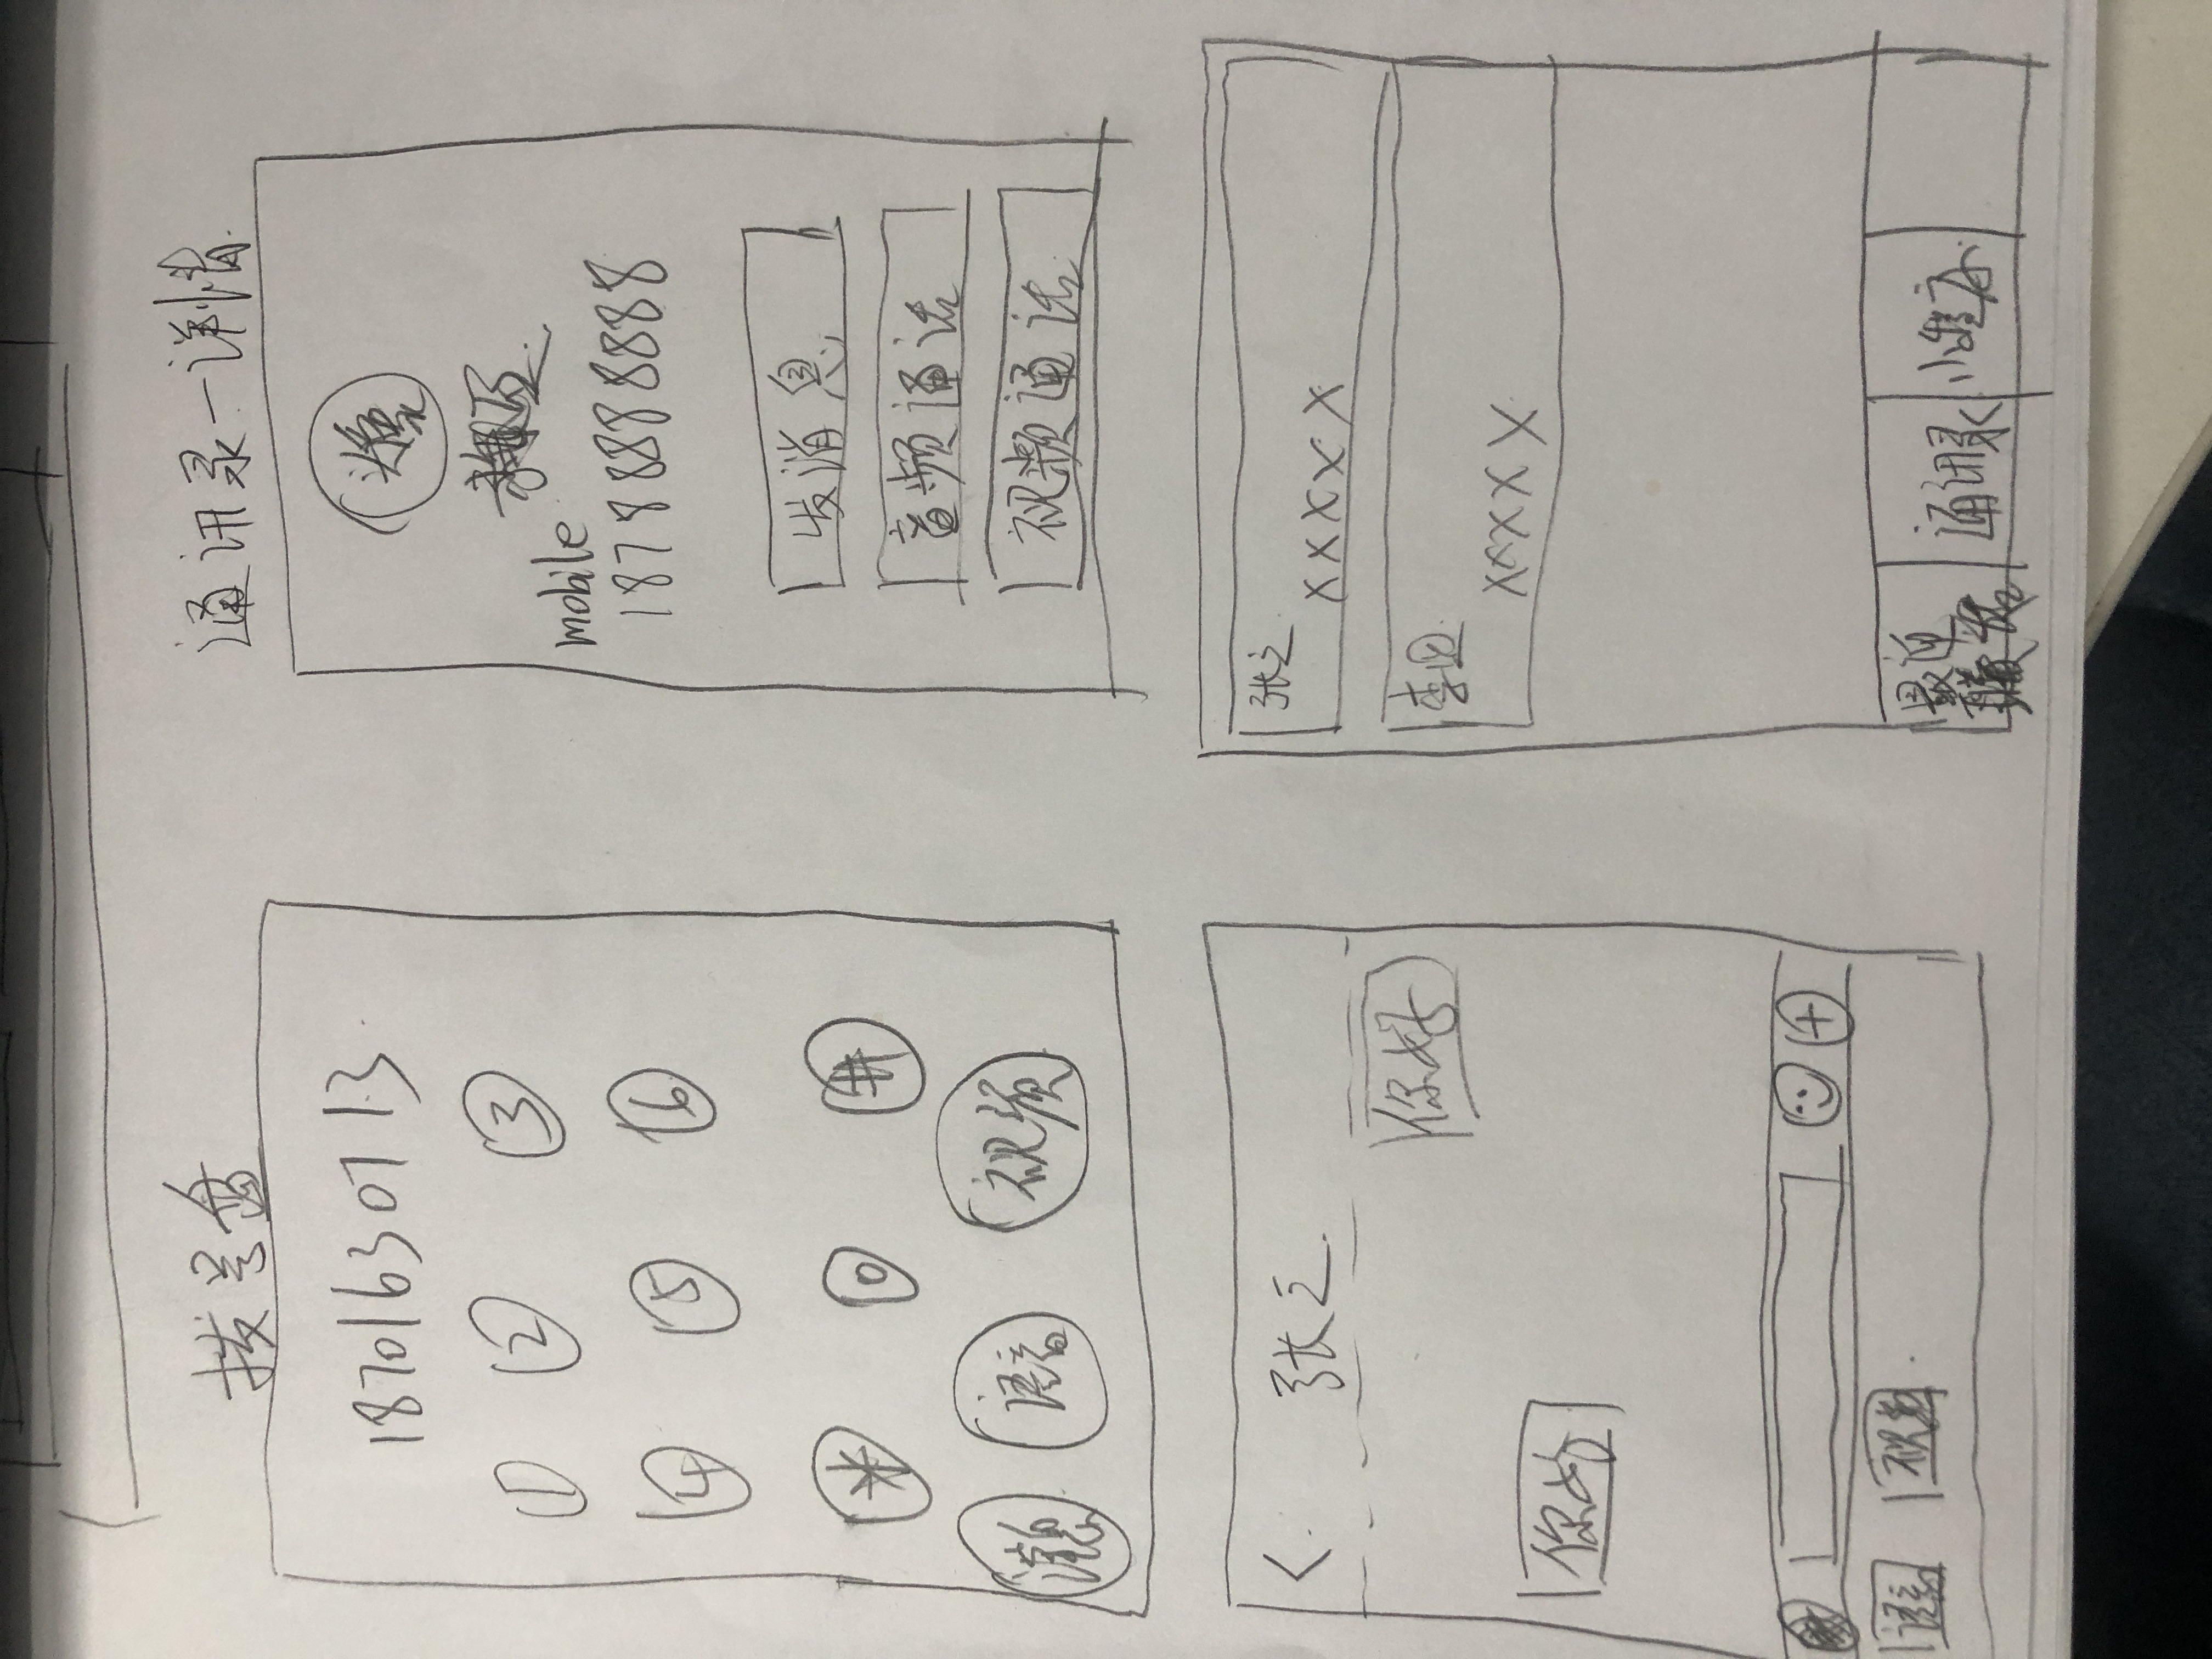 拨号盘
18701630713
1 2 3
4 5 6
* 0 #
消息 语音 视频
通讯录-详情
头像
mobile
18788888888
发消息
音频通话
视频通话
< 张三
你好
你好
+
语音 视频
张三
xxxxx
李四
xxxxx
最近 通讯录 小程序
话